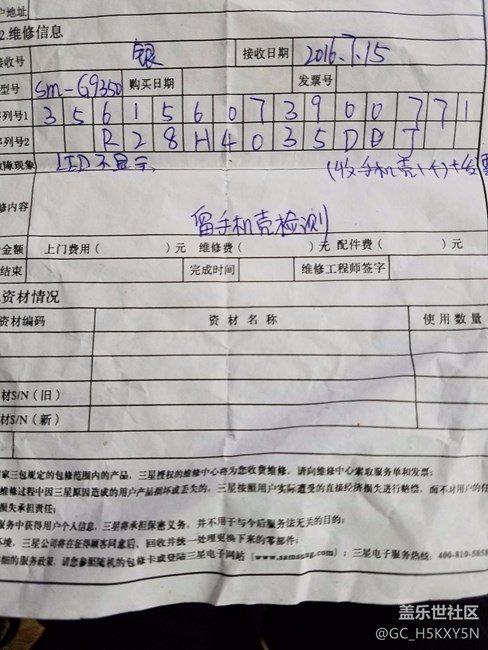 户地址
2.维修信息
接收号 银 接收日期 2016.7.15
型号 Sm-G9350 购买日期 发票号
序列号1 3 5 6 1 5 6 0 7 3 9 0 0 7 7 1
序列号2 R 2 8 H 4 0 3 5 D D J
故障现象 LED不显示, (收手机壳1个)+发票
修内容 留手机壳检测
金额 上门费用( )元 维修费( )元 配件费( )元
结束 完成时间 维修工程师签字
资材情况
资材编码 资材名称 使用数量
材S/N(旧)
材S/N(新)
家三包规定的包修范围内的产品,三星授权的维修中心将为您收费维修,请向维修中心索取服务单和发票;
维修过程中因三星原因造成的用户产品损坏或丢失的,三星按照用户实际遭受的直接经济损失进行赔偿,而不对用户的任
损失承担责任;
服务中获得用户个人信息,三星将承担保密义务,并不用于与今后服务法无关的目的;
环境,三星公司将在征得顾客同意后,回收并统一处理更换下来的零部件;
细的服务政策,请您参照随机的包修卡或登陆三星电子网站(www.samsung.com);三星电子服务热线:400-810-5858
盖乐世社区
@GC_H5KXY5N